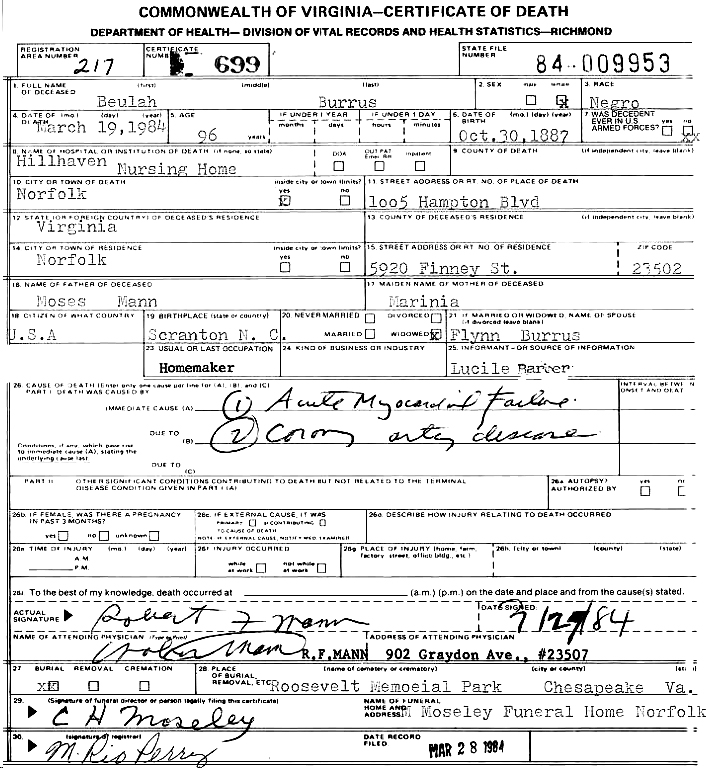 COMMONWEALTH OF VIRGINIA—CERTIFICATE OF DEATH
DEPARTMENT OF HEALTH— DIVISION OF VITAL RECORDS AND HEALTH STATISTICS—RICHMOND
REGISTRATION AREA NUMBER 217 CERTIFICATE 699 STATE FILE NUMBER 84-009953
1. FULL NAME OF DECEASED (first) (middle) (last) 2. SEX male female 3. RACE
Beulah Burrus x Negro
4. DATE OF DEATH (mo.) (day) (year) 5. AGE IF UNDER 1 YEAR IF UNDER 1 DAY 6. DATE OF BIRTH (mo.) (day) (year) 7. WAS DECEDENT EVER IN U.S. ARMED FORCES? yes no
March 19,1984 96 years months days hours minutes Oct.30,1887 xx
8. NAME OF HOSPITAL OR INSTITUTION OF DEATH (if none, so state) DOA OUT PAT Emer Rm Inpatient 9. COUNTY OF DEATH (if independent city, leave blank)
Hillhaven Nursing Home
10. CITY OR TOWN OF DEATH inside city or town limits? yes no 11. STREET ADDRESS OR RT. NO. OF PLACE OF DEATH
Norfolk x 1oo5 Hampton Blvd
12. STATE (OR FOREIGN COUNTRY) OF DECEASED'S RESIDENCE 13. COUNTY OF DECEASED'S RESIDENCE (if independent city, leave blank)
Virginia
14. CITY OR TOWN OF RESIDENCE inside city or town limits? yes no 15. STREET ADDRESS OR RT. NO. OF RESIDENCE ZIP CODE
Norfolk 5920 Finney St. 23502
16. NAME OF FATHER OF DECEASED 17. MAIDEN NAME OF MOTHER OF DECEASED
Moses Mann Marinia
18. CITIZEN OF WHAT COUNTRY 19. BIRTHPLACE (state or country) 20. NEVER MARRIED DIVORCED 21. IF MARRIED OR WIDOWED, NAME OF SPOUSE (if divorced leave blank)
U.S.A Scranton N. C. MARRIED WIDOWED x Flynn Burrus
23. USUAL OR LAST OCCUPATION 24. KIND OF BUSINESS OR INDUSTRY 25. INFORMANT - OR SOURCE OF INFORMATION
Homemaker Lucile Barber
26. CAUSE OF DEATH (Enter only one cause per line for (A), (B), and (C)) INTERVAL BETWEEN ONSET AND DEAT
PART I. DEATH WAS CAUSED BY
IMMEDIATE CAUSE (A) (1) Acute Myocardial Failure
DUE TO (B) (2) Corony artery disease
Conditions, if any, which gave rise to immediate cause (A), stating the underlying cause last.
DUE TO (C)
PART II OTHER SIGNIFICANT CONDITIONS CONTRIBUTING TO DEATH BUT NOT RELATED TO THE TERMINAL DISEASE CONDITION GIVEN IN PART I (A) 26a. AUTOPSY? AUTHORIZED BY yes
26b. IF FEMALE, WAS THERE A PREGNANCY IN PAST 3 MONTHS? 26c. IF EXTERNAL CAUSE, IT WAS 26d. DESCRIBE HOW INJURY RELATING TO DEATH OCCURRED
yes no unknown PRIMARY CONTRIBUTING TO CAUSE OF DEATH
NOTE: IF EXTERNAL CAUSE, NOTIFY MED. EXAMINER
26e. TIME OF INJURY (mo.) (day) (year) 26f. INJURY OCCURRED 26g. PLACE OF INJURY (home, farm, factory, street, office bldg., etc.) 26h. (city or town) (county) (state)
A.M. P.M. while at work not while at work
26i. To the best of my knowledge, death occurred at (a.m.) (p.m.) on the date and place and from the cause(s) stated.
ACTUAL SIGNATURE Robert F Mann DATE SIGNED: 3/27/84
NAME OF ATTENDING PHYSICIAN ADDRESS OF ATTENDING PHYSICIAN
R.F.MANN 902 Graydon Ave., #23507
27. BURIAL REMOVAL CREMATION 28. PLACE OF BURIAL, REMOVAL, ETC. (name of cemetery or crematory) (city or county)
xx Roosevelt Memoeial Park Chesapeake Va.
29. (Signature of funeral director or person legally filing this certificate) NAME OF FUNERAL HOME AND ADDRESS
C H Moseley M Moseley Funeral Home Norfolk
30. (signature of registrar) DATE RECORD FILED MAR 28 1984
M. Rio Perry